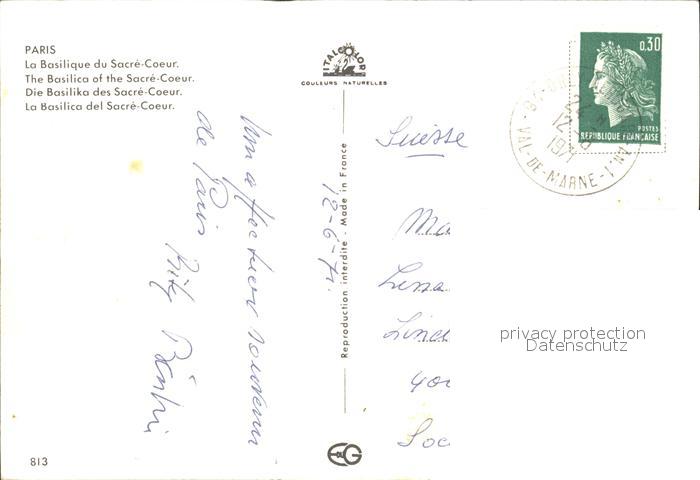 PARIS
La Basilique du Sacré-Coeur.
The Basilica of the Sacré-Coeur.
Die Basilika des Sacré-Coeur.
La Basilica del Sacré-Coeur.
ITALCOLOR
COULEURS NATURELLES
0,30
POSTES
REPUBLIQUE FRANÇAISE
12
1971
VAL-DE-MARNE
Un affectueux souvenir
de Paris
12-6-71.
Reproduction interdite - Made in France
Suisse
privacy protection
Datenschutz
EG
813